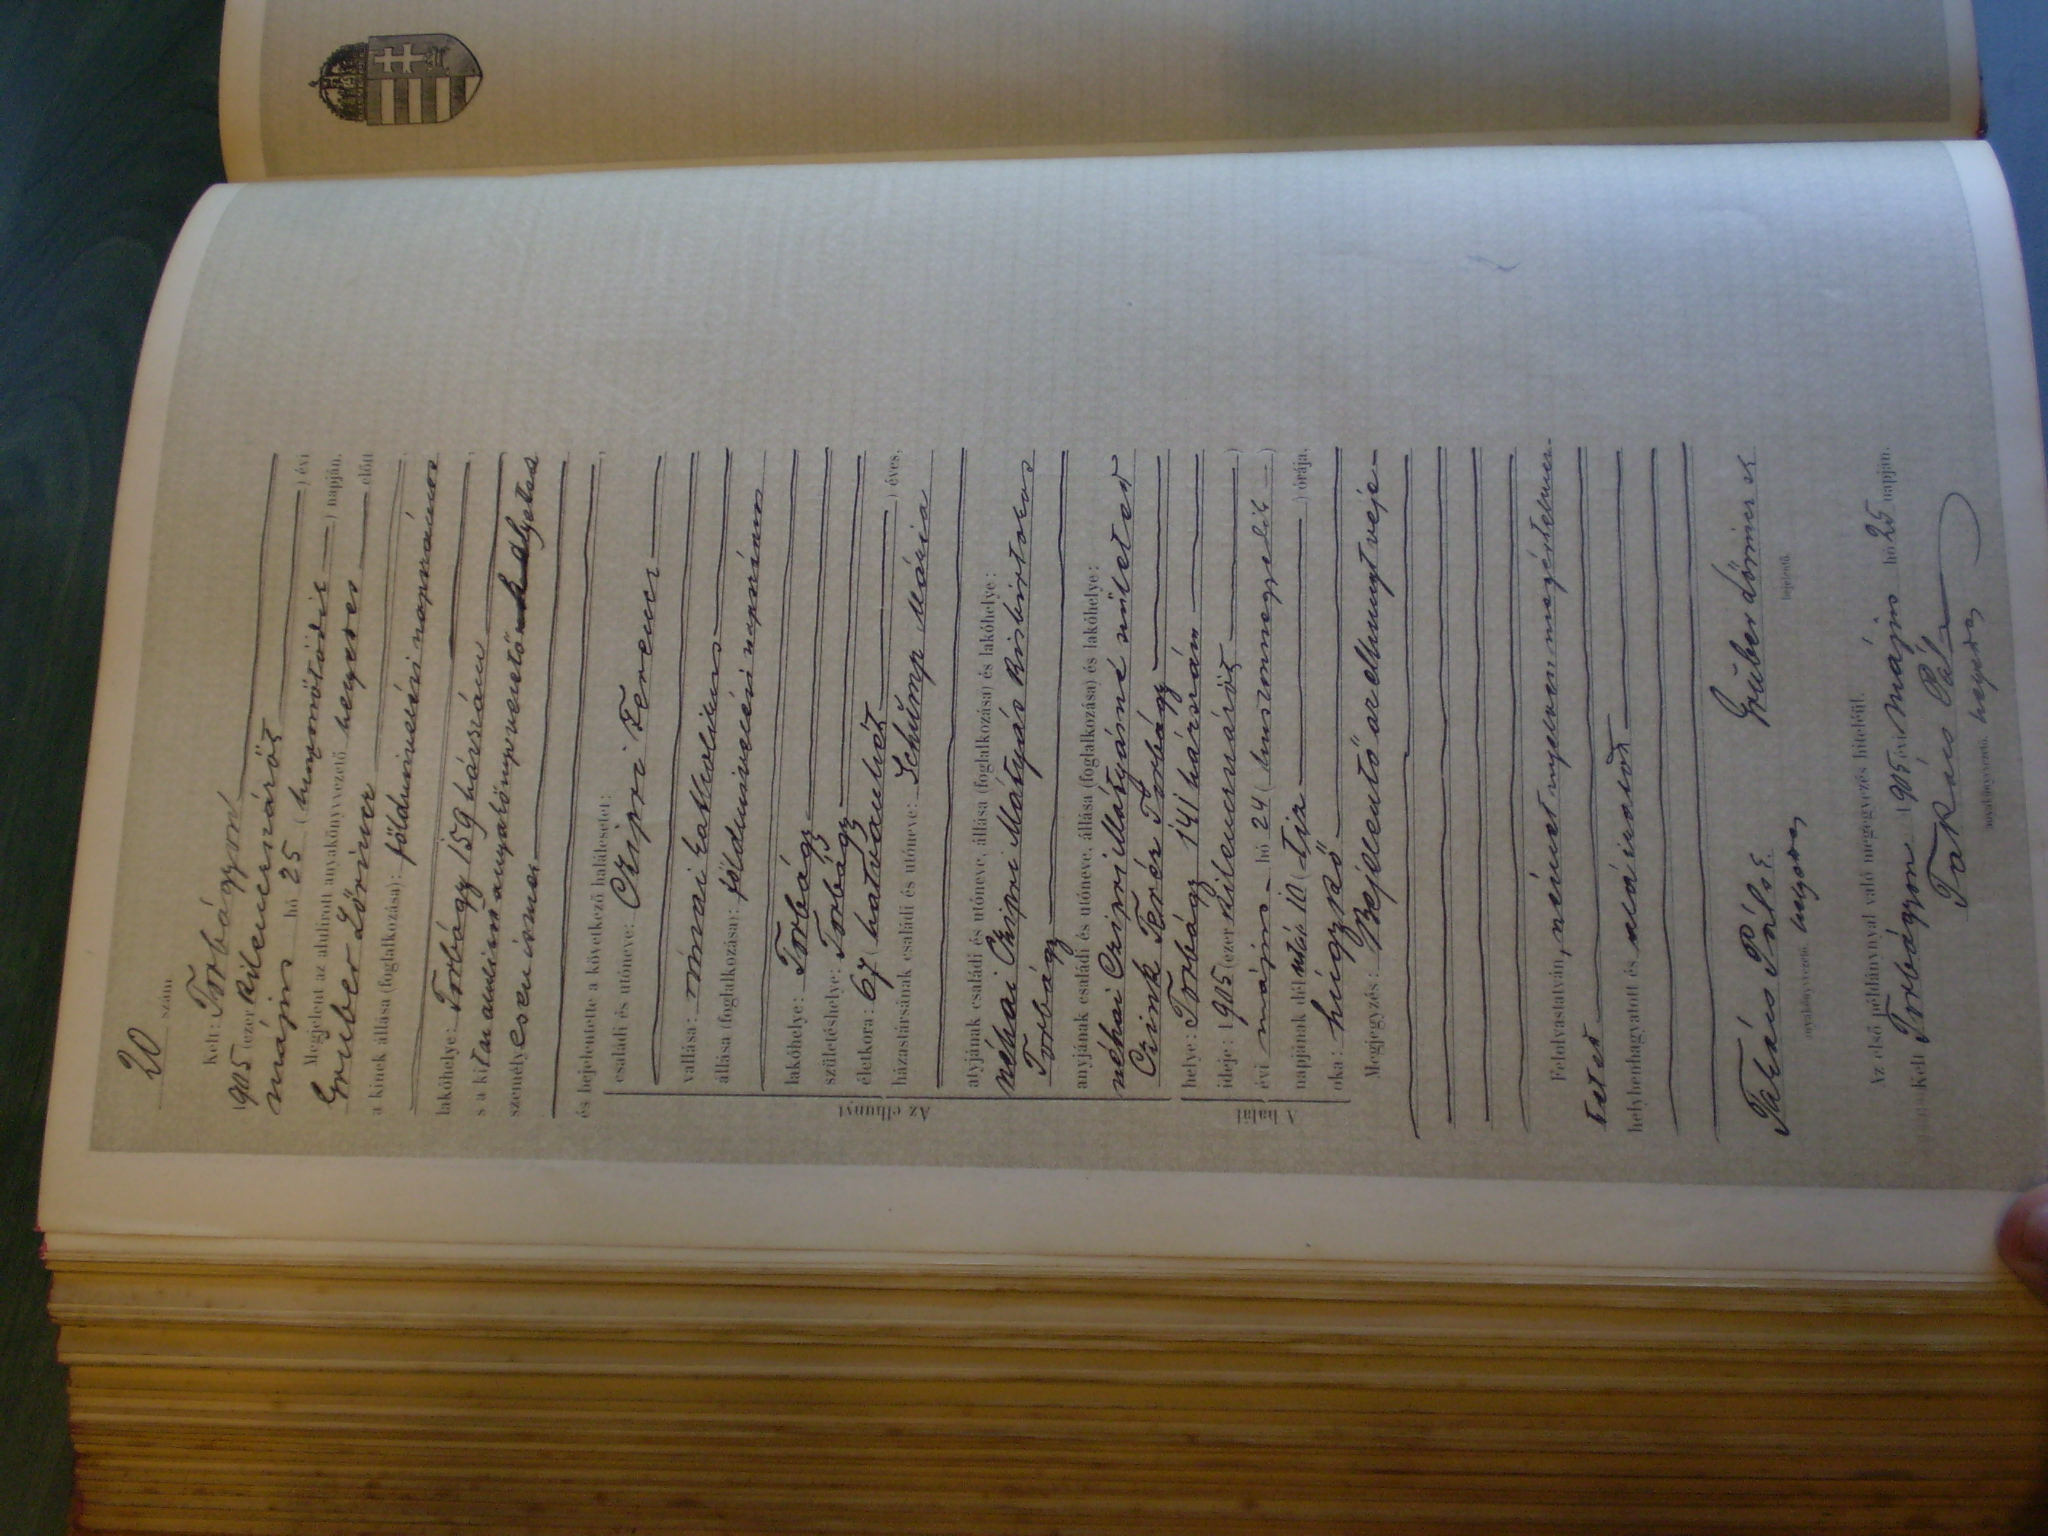 20 szám
Kelt: Torbágyon
1905 (ezer kilencszázöt) évi
május hó 25 (huszonötödik) napján.
Megjelent az alulirott anyakönyvvezető helyettes előtt
Gruber Lőrincz
a kinek állása (foglalkozása): földmivelési napszámos
lakóhelye: Torbágy 159 házszám
s a ki
személyesen ismer
és bejelentette a következő halálesetet:
Az elhunyt
családi és utóneve: Czipri Ferencz
vallása: római katholikus
állása (foglalkozása): földmivelési napszámos
lakóhelye: Torbágy
születéshelye: Torbágy
életkora: 67 (hatvanhét) éves,
házastársának családi és utóneve: Schümp Mária
atyjának családi és utóneve, állása (foglalkozása) és lakóhelye:
néhai Czipri Mátyás kisbirtokos
Torbágy
anyjának családi és utóneve, állása (foglalkozása) és lakóhelye:
néhai Czipri Mátyásné született
Czink Teréz Torbágy
A halál
helye: Torbágy 141 házszám
ideje: 1905 (ezer kilencszázöt)
évi május hó 24 (huszonnegyedik)
napjának délután 10 (tiz) órája,
oka: hügykő
Megjegyzés: Bejelentő az elhunyt veje
Felolvastatván, német nyelven megértelmez-
tetett
helybenhagyatott és aláiratott
Takács Pál s.k. Gruber Lőrincz sk
anyakönyvvezető helyettes bejelentő.
Az első példánynyal való megegyezés hiteléül.
Kelt Torbágyon 1905 évi május hó 25 napján.
Takács Pál
anyakönyvvezető. helyettes